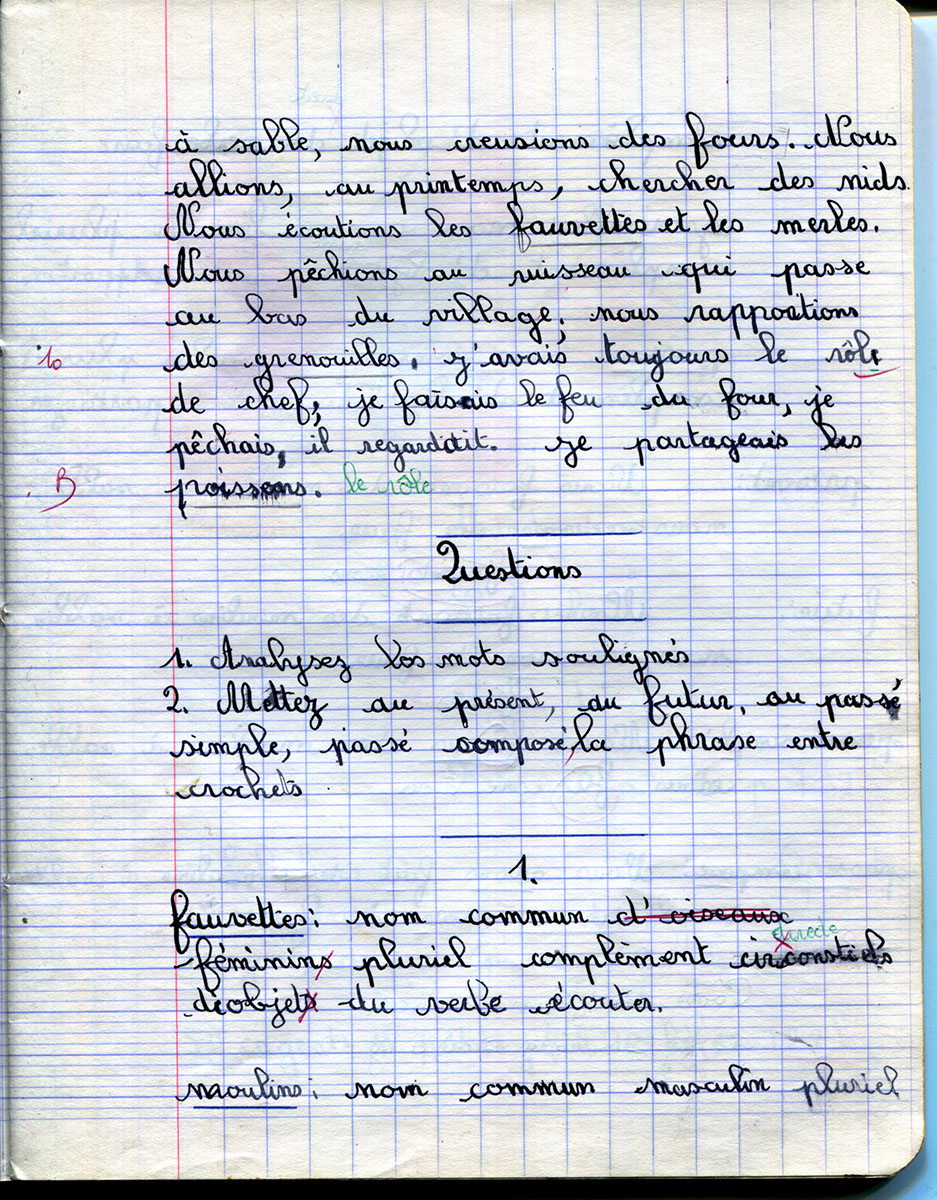 à sable, nous creusions des fours. Nous
allions, au printemps, chercher des nids.
Nous écoutions les fauvettes et les merles.
Nous pêchions au ruisseau qui passe
au bas du village, nous rapportions
10 des grenouilles. j'avais toujours le rôle
de chef; je faisais le feu du four, je
pêchais, il regardait. Je partageais les
B poissons. le rôle
Questions
1. Analysez les mots soulignés
2. Mettez au présent, au futur, au passé
simple, passé composé, la phrase entre
crochets
1.
fauvettes: nom commun d'oiseaux
directe
féminins pluriel complèment circonstiels
d'objets du verbe écouter.
moulins: nom commun masculin pluriel